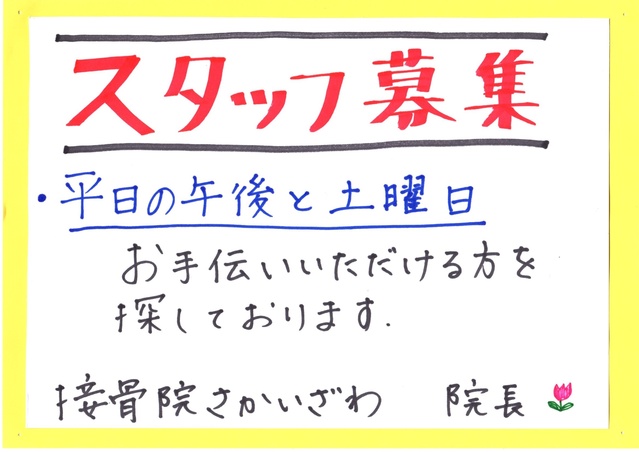 スタッフ募集
・平日の午後と土曜日
お手伝いいただける方を
探しております.
接骨院さかいざわ 院長